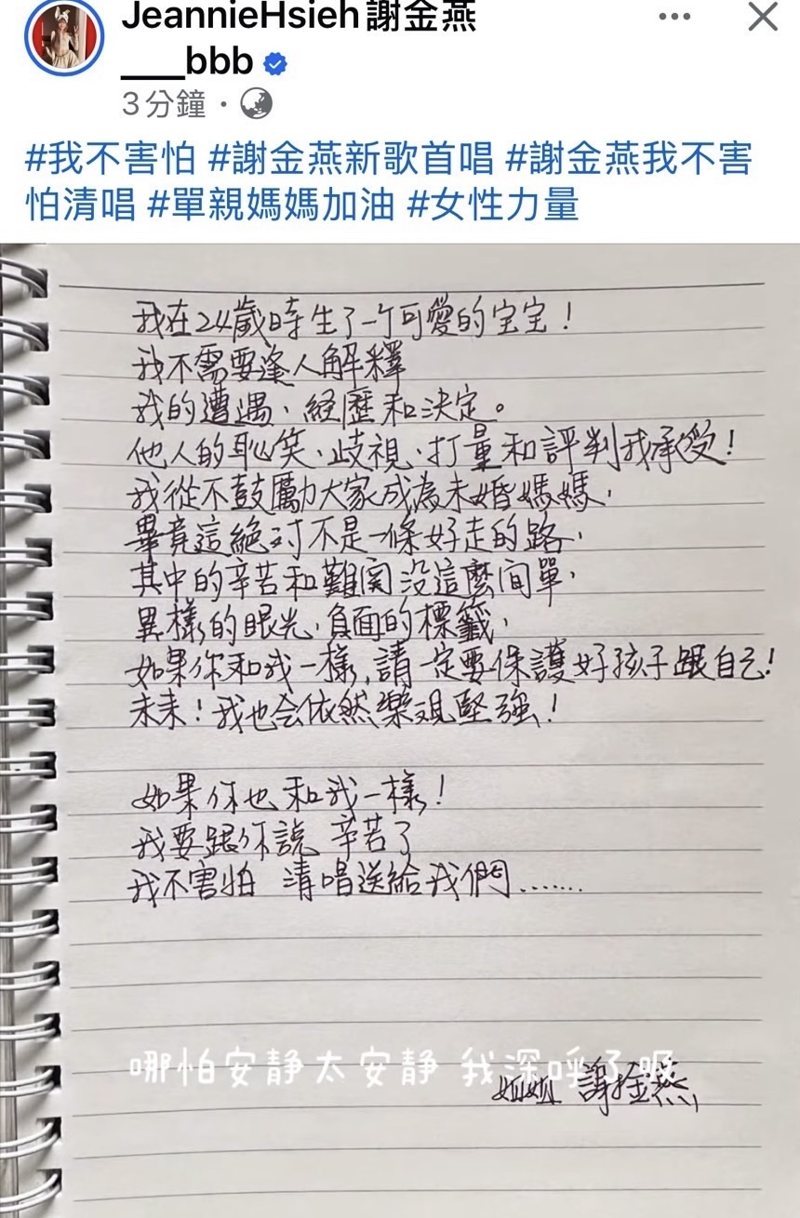 JeannieHsieh謝金燕
___bbb
3分鐘 ·
#我不害怕 #謝金燕新歌首唱 #謝金燕我不害
怕清唱 #單親媽媽加油 #女性力量
我在24歲時生了一个可愛的宝宝！
我不需要逢人解釋
我的遭遇、経歷和決定。
他人的恥笑、歧視、打量和評判我承受！
我從不鼓勵大家成為未婚媽媽，
畢竟這絕对不是一條好走的路，
其中的辛苦和難関没這麼简單，
異樣的眼光、負面的標籤，
如果你和我一樣，請一定要保護好孩子跟自己！
未来！我也会依然樂观堅強！
如果你也和我一樣！
我要跟你說 辛苦了
我不害怕 清唱送給我們.......
哪怕安静太安静 我深呼了吸
姐姐 謝金燕